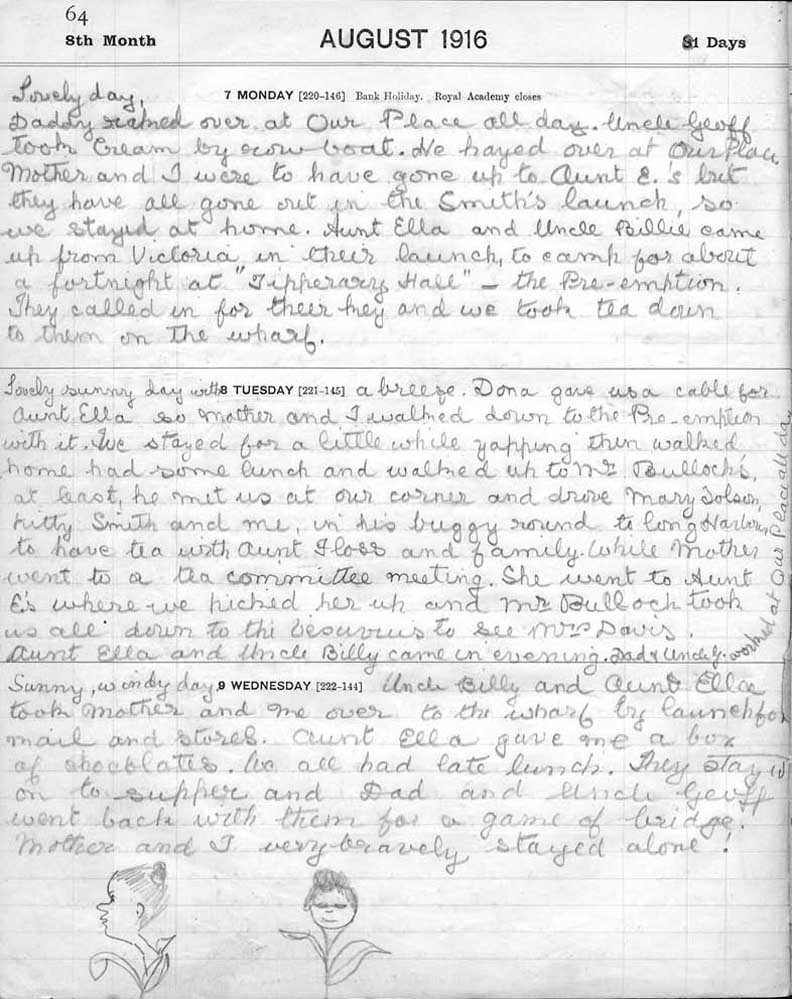 64
8th Month
AUGUST 1916
31 Days
7 MONDAY [220-146] Bank Holiday. Royal Academy closes
Lovely day,
Daddy over at Our Place all day. Uncle Geoff
took Cream by row boat. He hayed over at Our Place
Mother and I were to have gone up to Aunt E.'s but
they have all gone out in the Smith's launch, so
we stayed at home. Aunt Ella and Uncle Billie came
up from Victoria in their launch, to camp for about
a fortnight at "Tipperary Hall" – the Pre-emption.
They called in for their key and we took tea down
to them on the wharf.
8 TUESDAY [221-145]
Lovely sunny day with a breeze. Dona gave us a cable for
Aunt Ella so Mother and I walked down to the Pre-emption
with it. We stayed for a little while yapping then walked
home had some lunch and walked up to Mr Bullock's,
at least, he met us at our corner and drove Mary
Kitty Smith and me, in his buggy round to Long Harbour,
to have tea with Aunt Floss and family. While Mother
went to a tea committee meeting. She went to Aunt
E's where we picked her up and Mr Bullock took
us all down to the Vesuvius to see Mrs Davis.
Aunt Ella and Uncle Billy came in evening. Dad & Uncle G. worked at Our Place all day
9 WEDNESDAY [222-144]
Sunny, windy day, Uncle Billy and Aunt Ella
took Mother and me over to the wharf by launch for
mail and stores. Aunt Ella gave me a box
of chocolates. We all had late lunch. They stayed
on to supper and Dad and Uncle Geoff
went back with them for a game of bridge.
Mother and I very bravely stayed alone!